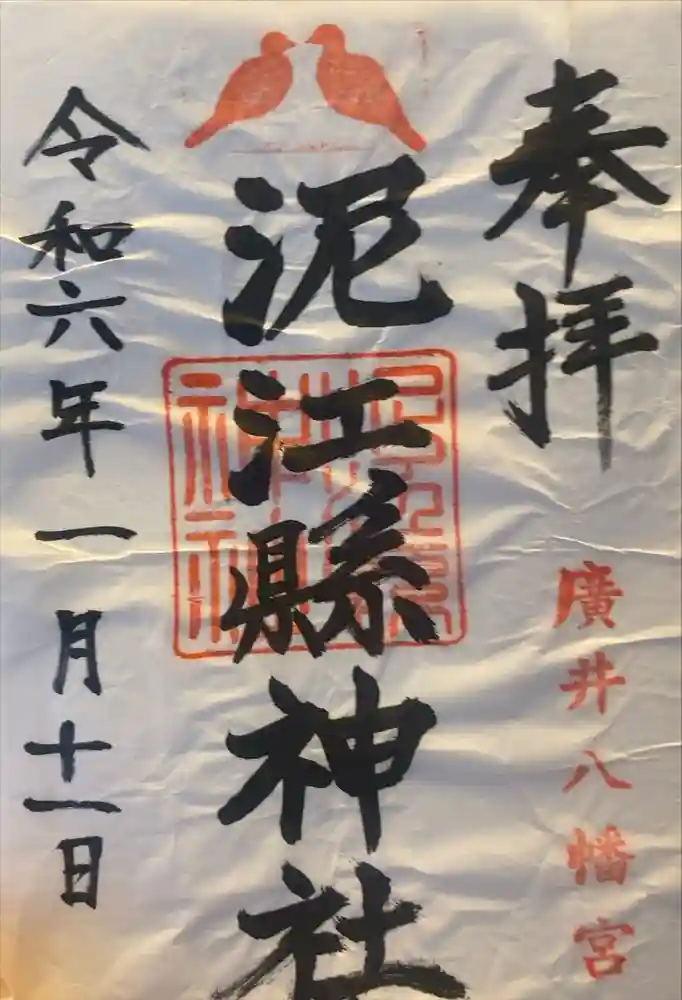 奉拝
廣井八幡宮
泥江縣神社
泥江縣神社
令和六年一月十一日